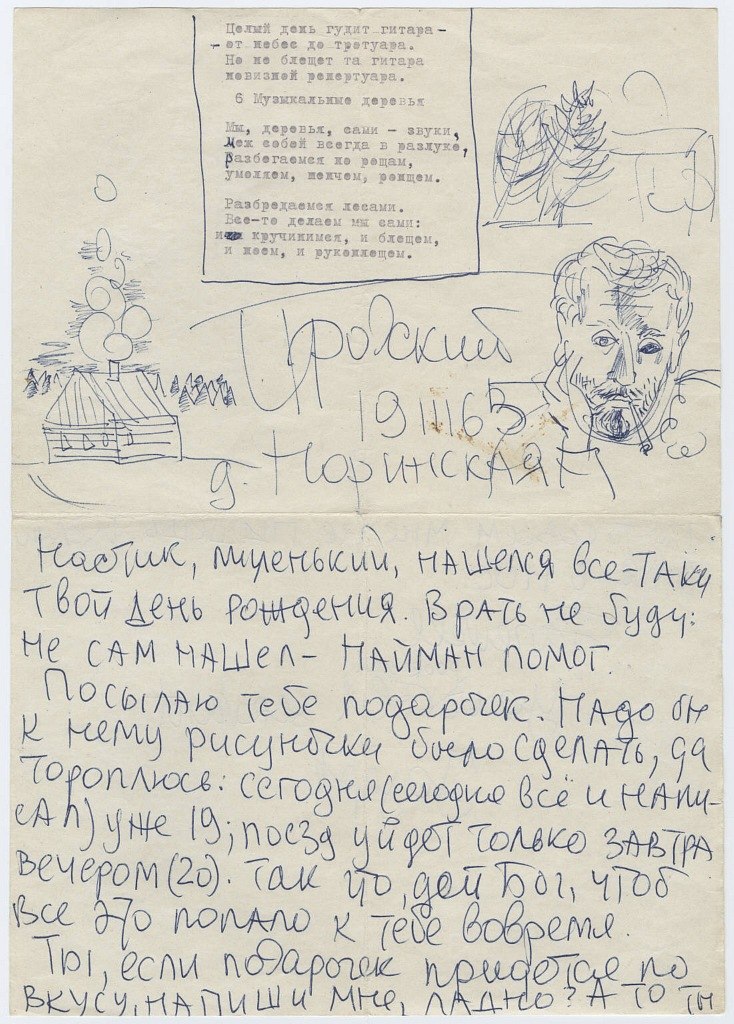 Целый день гудит гитара -
от небес до тротуара.
Но не блещет та гитара
новизной репертуара.
6 Музыкальные деревья
Мы, деревья, сами - звуки,
меж собой всегда в разлуке,
Разбегаемся по рощам,
умоляем, шепчем, ропщем.
Разбредаемся лесами.
Все-то делаем мы сами:
и кручинимся, и блещем,
и поем, и рукоплещем.
Бродский
19 III 65
д. Норинская
Настик, миленький, нашелся все-таки
твой день рождения. Врать не буду:
не сам нашел - Найман помог.
Посылаю тебе подарочек. Надо бы
к нему рисуночки было сделать, да
тороплюсь: сегодня (сегодня всё и напи-
сал) уже 19; поезд уйдет только завтра
вечером (20). Так что, дай Бог, чтоб
все это попало к тебе вовремя.
Ты, если подарочек придется по
вкусу, напиши мне, ладно? А то ты